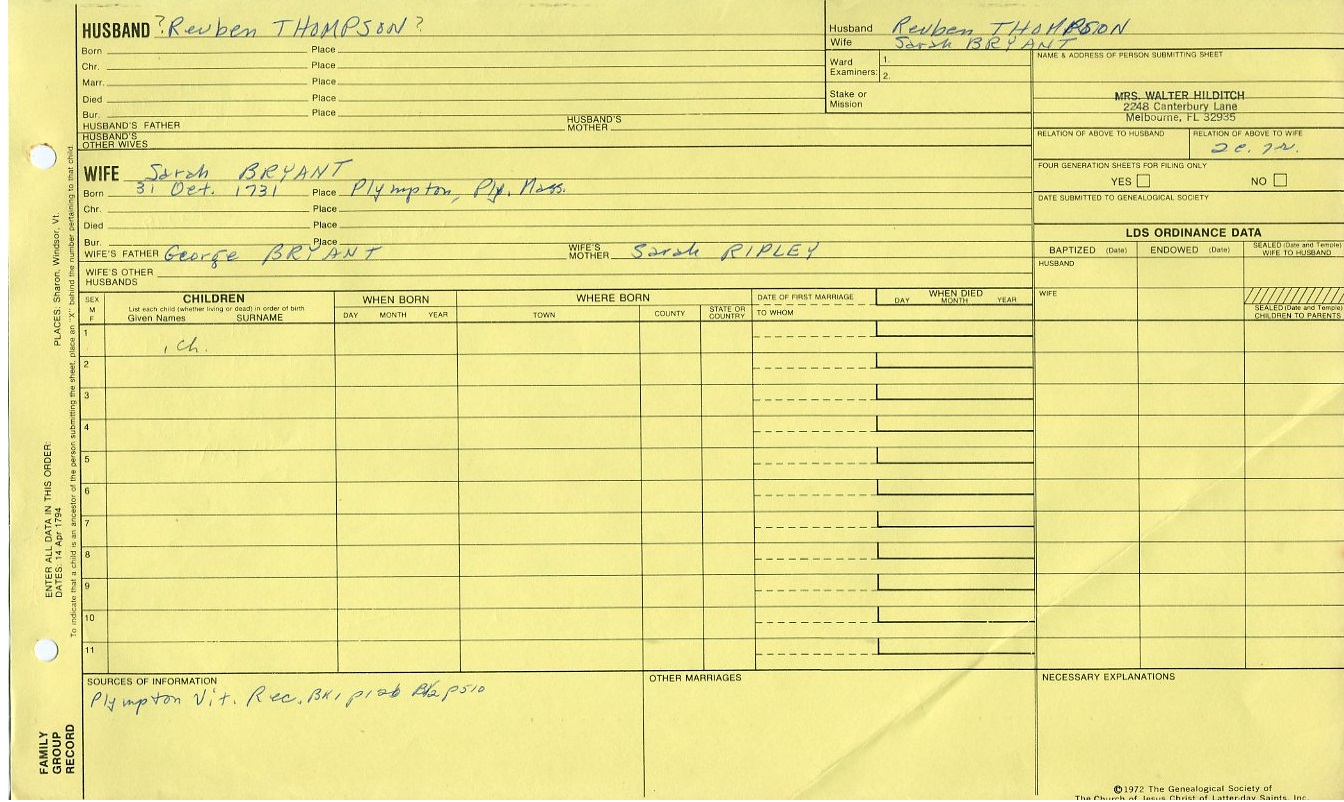 HUSBAND ?Reuben THOMPSON?
Born Place
Chr. Place
Marr. Place
Died Place
Bur. Place
HUSBAND'S FATHER HUSBAND'S MOTHER
HUSBAND'S OTHER WIVES
Husband Reuben THOMPSON
Wife Sarah BRYANT
Ward Examiners: 1.
2.
Stake or Mission
NAME & ADDRESS OF PERSON SUBMITTING SHEET
MRS. WALTER HILDITCH
2248 Canterbury Lane
Melbourne, FL 32935
RELATION OF ABOVE TO HUSBAND RELATION OF ABOVE TO WIFE
FOUR GENERATION SHEETS FOR FILING ONLY
YES NO
DATE SUBMITTED TO GENEALOGICAL SOCIETY
WIFE Sarah BRYANT
Born 31 Oct. 1731 Place Plympton, Ply. Mass.
Chr. Place
Died Place
Bur. Place
WIFE'S FATHER George BRYANT WIFE'S MOTHER Sarah RIPLEY
WIFE'S OTHER HUSBANDS
LDS ORDINANCE DATA
BAPTIZED (Date) ENDOWED (Date) SEALED (Date and Temple) WIFE TO HUSBAND
HUSBAND
WIFE
SEALED (Date and Temple) CHILDREN TO PARENTS
SEX M F
CHILDREN
List each child (whether living or dead) in order of birth
Given Names SURNAME
WHEN BORN
DAY MONTH YEAR
WHERE BORN
TOWN COUNTY STATE OR COUNTRY
DATE OF FIRST MARRIAGE
TO WHOM
WHEN DIED
DAY MONTH YEAR
1 , ch.
2
3
4
5
6
7
8
9
10
11
SOURCES OF INFORMATION
Plympton Vit. Rec. BK1 p126 p510
OTHER MARRIAGES
NECESSARY EXPLANATIONS
ENTER ALL DATA IN THIS ORDER:
DATES: 14 Apr 1794
PLACES: Sharon, Windsor, Vt.
To indicate that a child is an ancestor of the person submitting the sheet, place an "X" behind the number pertaining to that child.
FAMILY GROUP RECORD
©1972 The Genealogical Society of
The Church of Jesus Christ of Latter-day Saints, Inc.